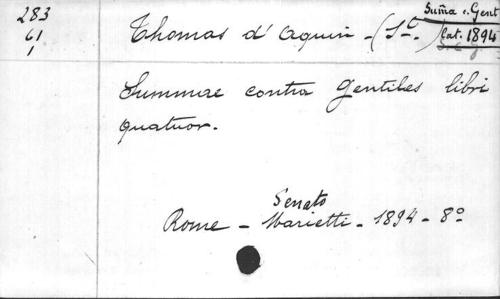 283
61
1
Thomas d'Aquin - (St.)
Suma c. Gent
Lat. 1894
Summae contra Gentiles libri
quatuor.
Senato
Rome - Marietti - 1894 - 8º